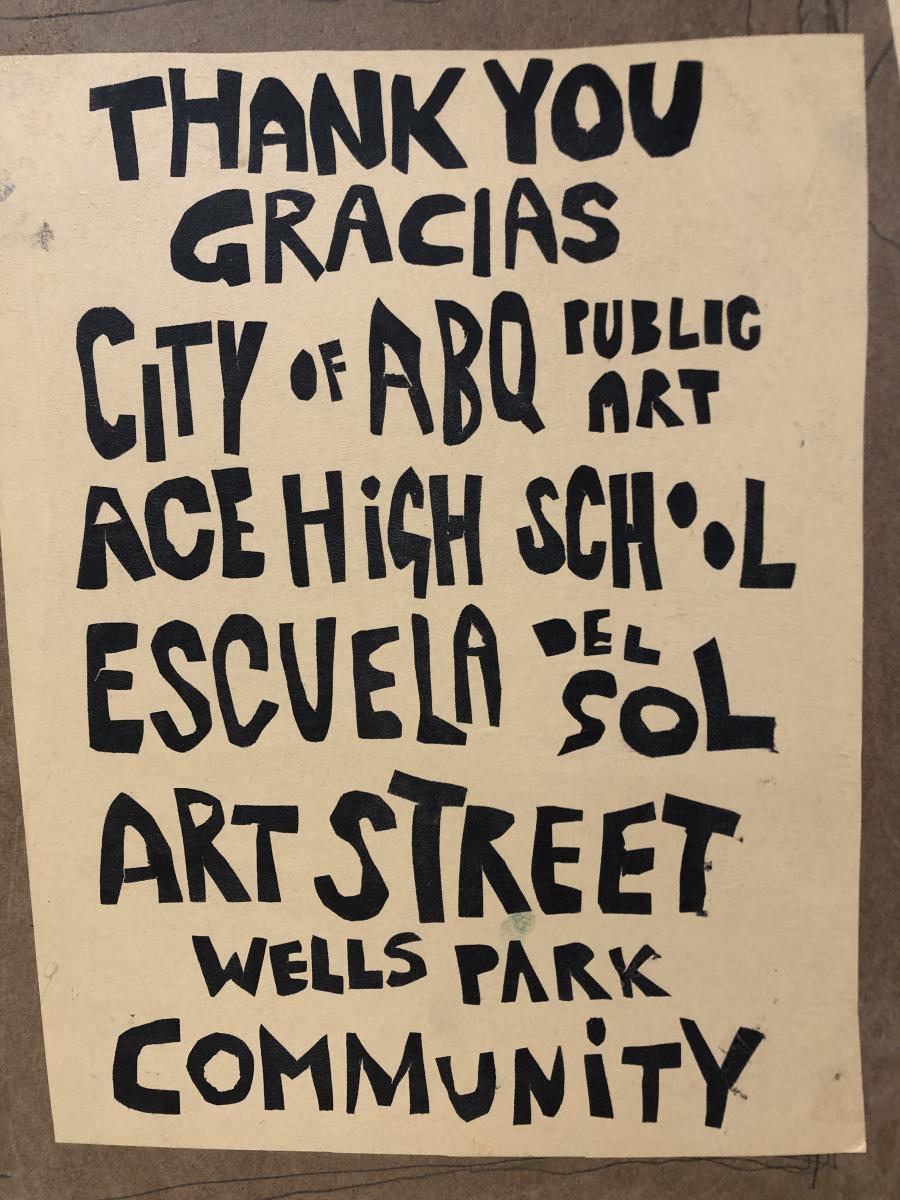 THANK YOU
GRACIAS
CiTY OF ABQ PUBLIC
ART
ACE HiGH SCHOOL
ESCUELA DEL
SOL
ART STREET
WELLS PARK
COMMUNiTY